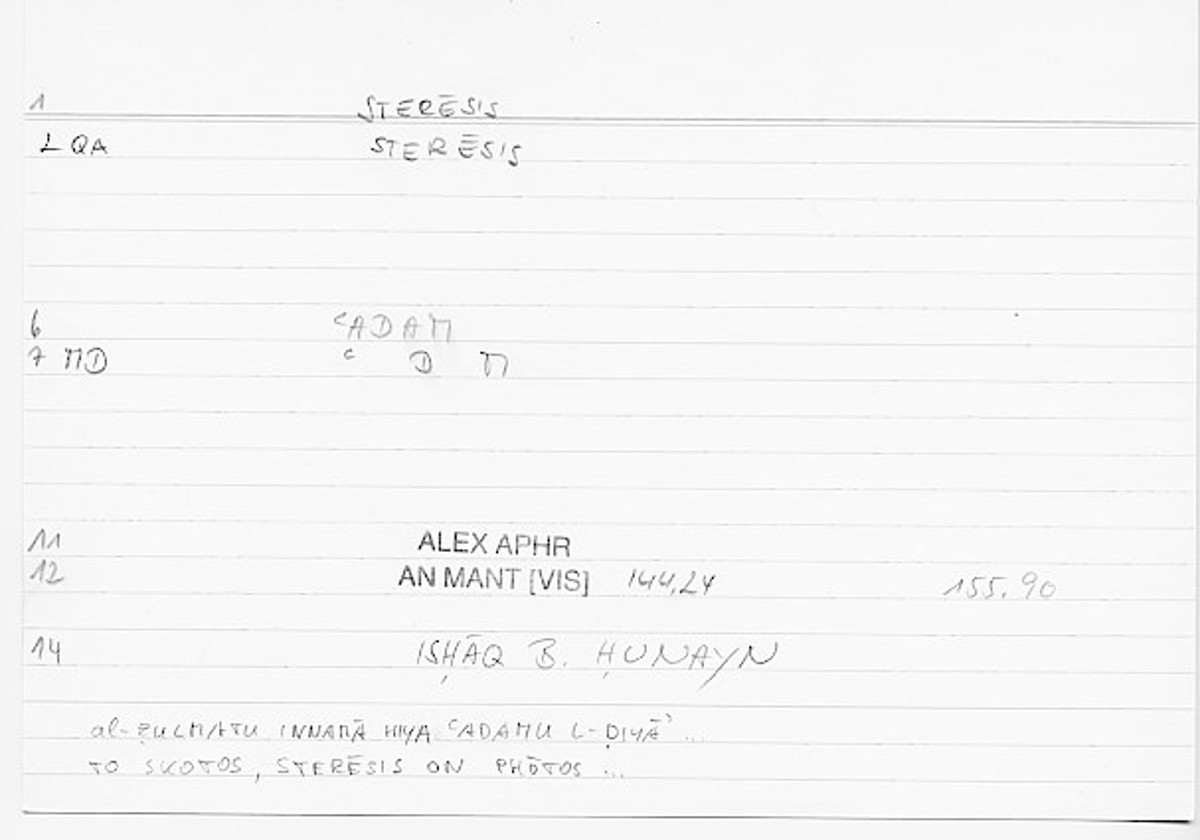 1 STERĒSIS
L QA STERĒSIS
6 ʿADAM
7 MD ʿ D M
11 ALEX APHR
12 AN MANT [VIS] 144,24 155.90
14 ISḤĀQ B. ḤUNAYN
al-ẒULMATU INNAMĀ HIYA ʿADAMU L-ḌIYĀʾ ...
TO SKOTOS, STERĒSIS ON PHŌTOS ...